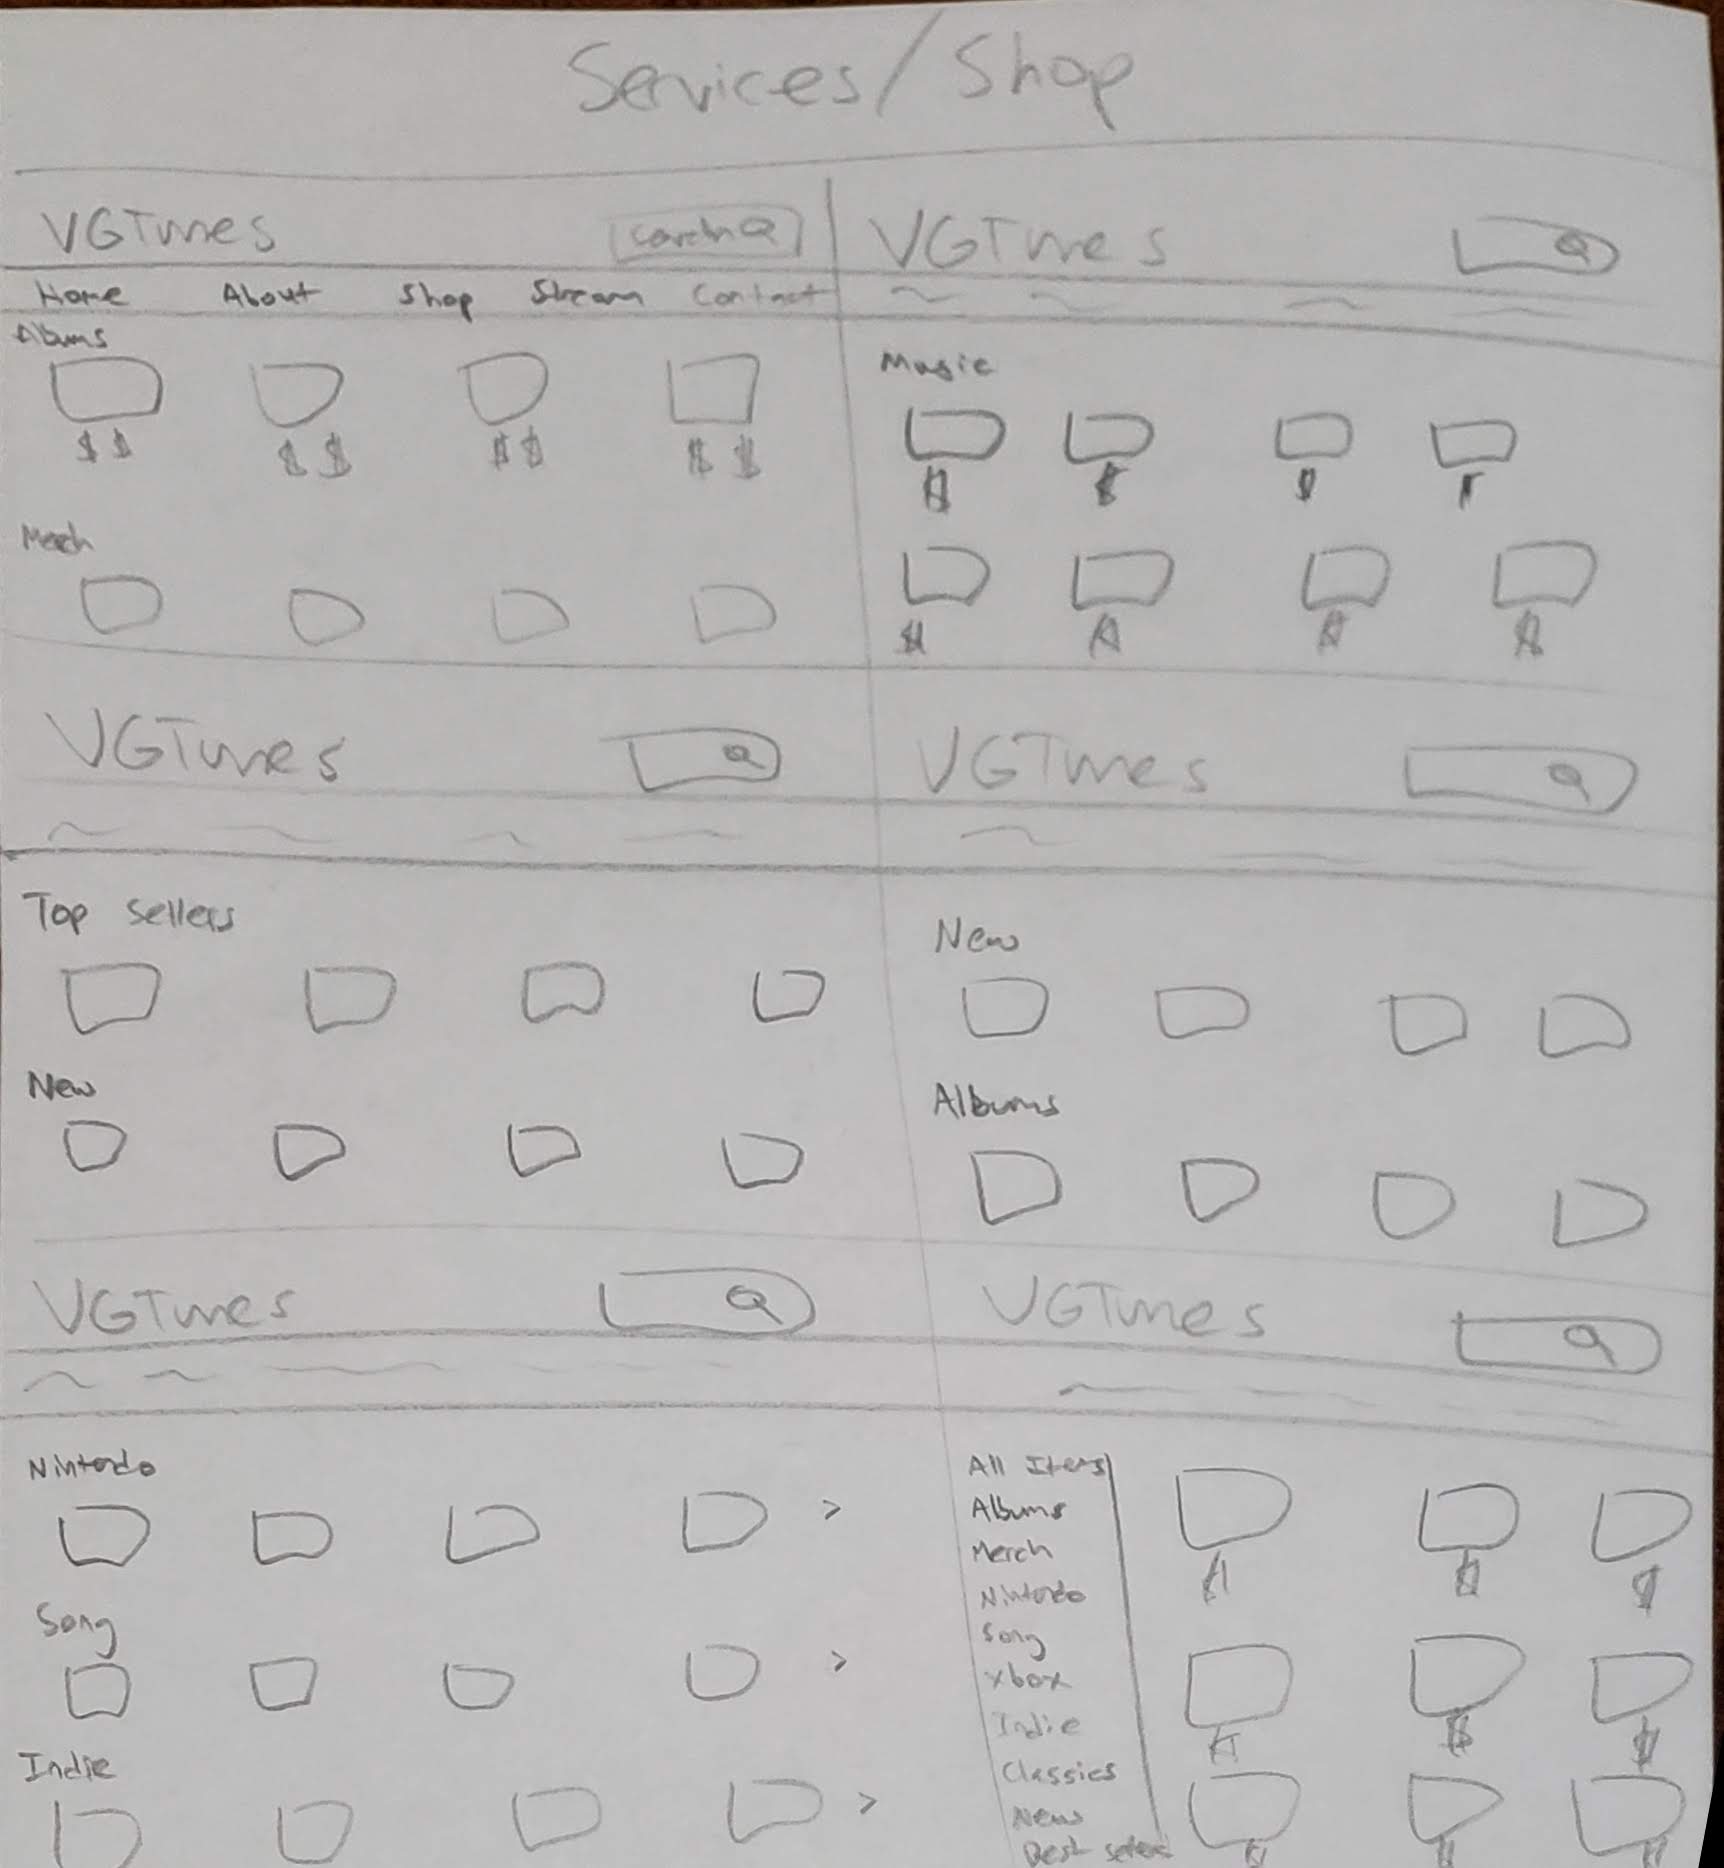 Services/Shop
VGTunes Search
Home About Shop Stream Contact
Albums
$$ $$ $$ $$
Merch
VGTunes
Music
$ $ $ $
$ $ $ $
VGTunes
Top sellers
New
VGTunes
New
Albums
VGTunes
Nintendo
>
Sony
>
Indie
>
VGTunes
All Items
Albums
Merch
Nintendo
Sony
Xbox
Indie
Classics
New
Best seller
$ $ $
$ $ $
$ $ $